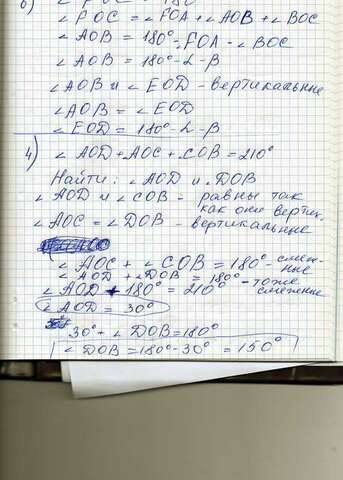 ∠FOC = ∠FOA + ∠AOB + ∠BOC
∠AOB = 180° - FOA - ∠BOC
∠AOB = 180° - L - β
∠AOB и ∠EOD - вертикальные
∠AOB = ∠EOD
∠EOD = 180° - L - β
4) ∠AOD + AOC + COB = 210°
Найти: ∠AOD и ∠DOB
∠AOD и ∠COB - равны так
как они вертик.
∠AOC = ∠DOB - вертикальные
∠AOC + ∠COB = 180° - смеж-
ные
∠AOD + ∠DOB = 180° - тоже
смежные
∠AOD + 180° = 210°
∠AOD = 30°
30° + ∠DOB = 180°
∠DOB = 180° - 30° = 150°